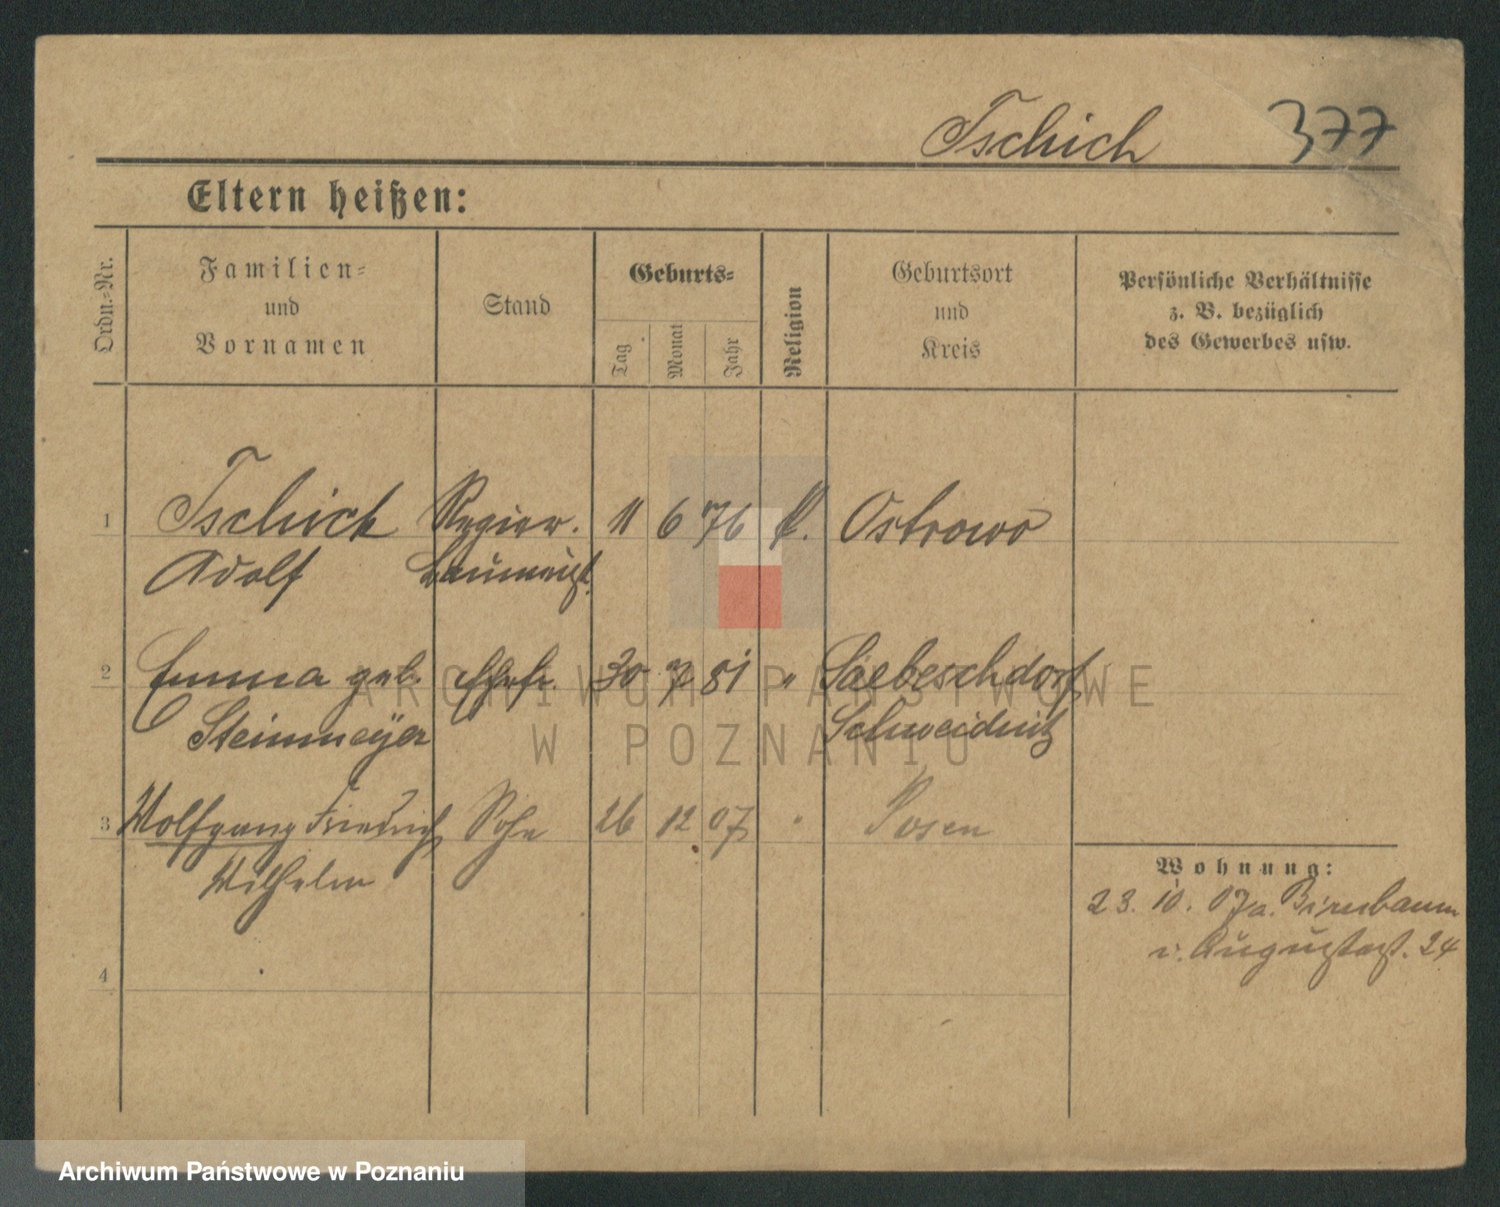 Tschich 377
Eltern heißen:
Ordn.-Nr.
Familien-
und
Vornamen
Stand
Geburts-
Tag
Monat
Jahr
Religion
Geburtsort
und
Kreis
Persönliche Verhältnisse
z. B. bezüglich
des Gewerbes usw.
1 Tschich Regier. 11 6 76 k. Ostrowo
Adolf Baumeist.
2 Emma geb. Ehefr. 30 7 81 " Saebeschdorf
Steinmeyer Schweidnitz
3 Wolfgang Friedrich Sohn 26 12 07 " Posen
Wilhelm
4
Wohnung:
23. 10. 07 a. Birnbaum
i. Augustast. 24
ARCHIWUM PAŃSTWOWE
W POZNANIU
Archiwum Państwowe w Poznaniu